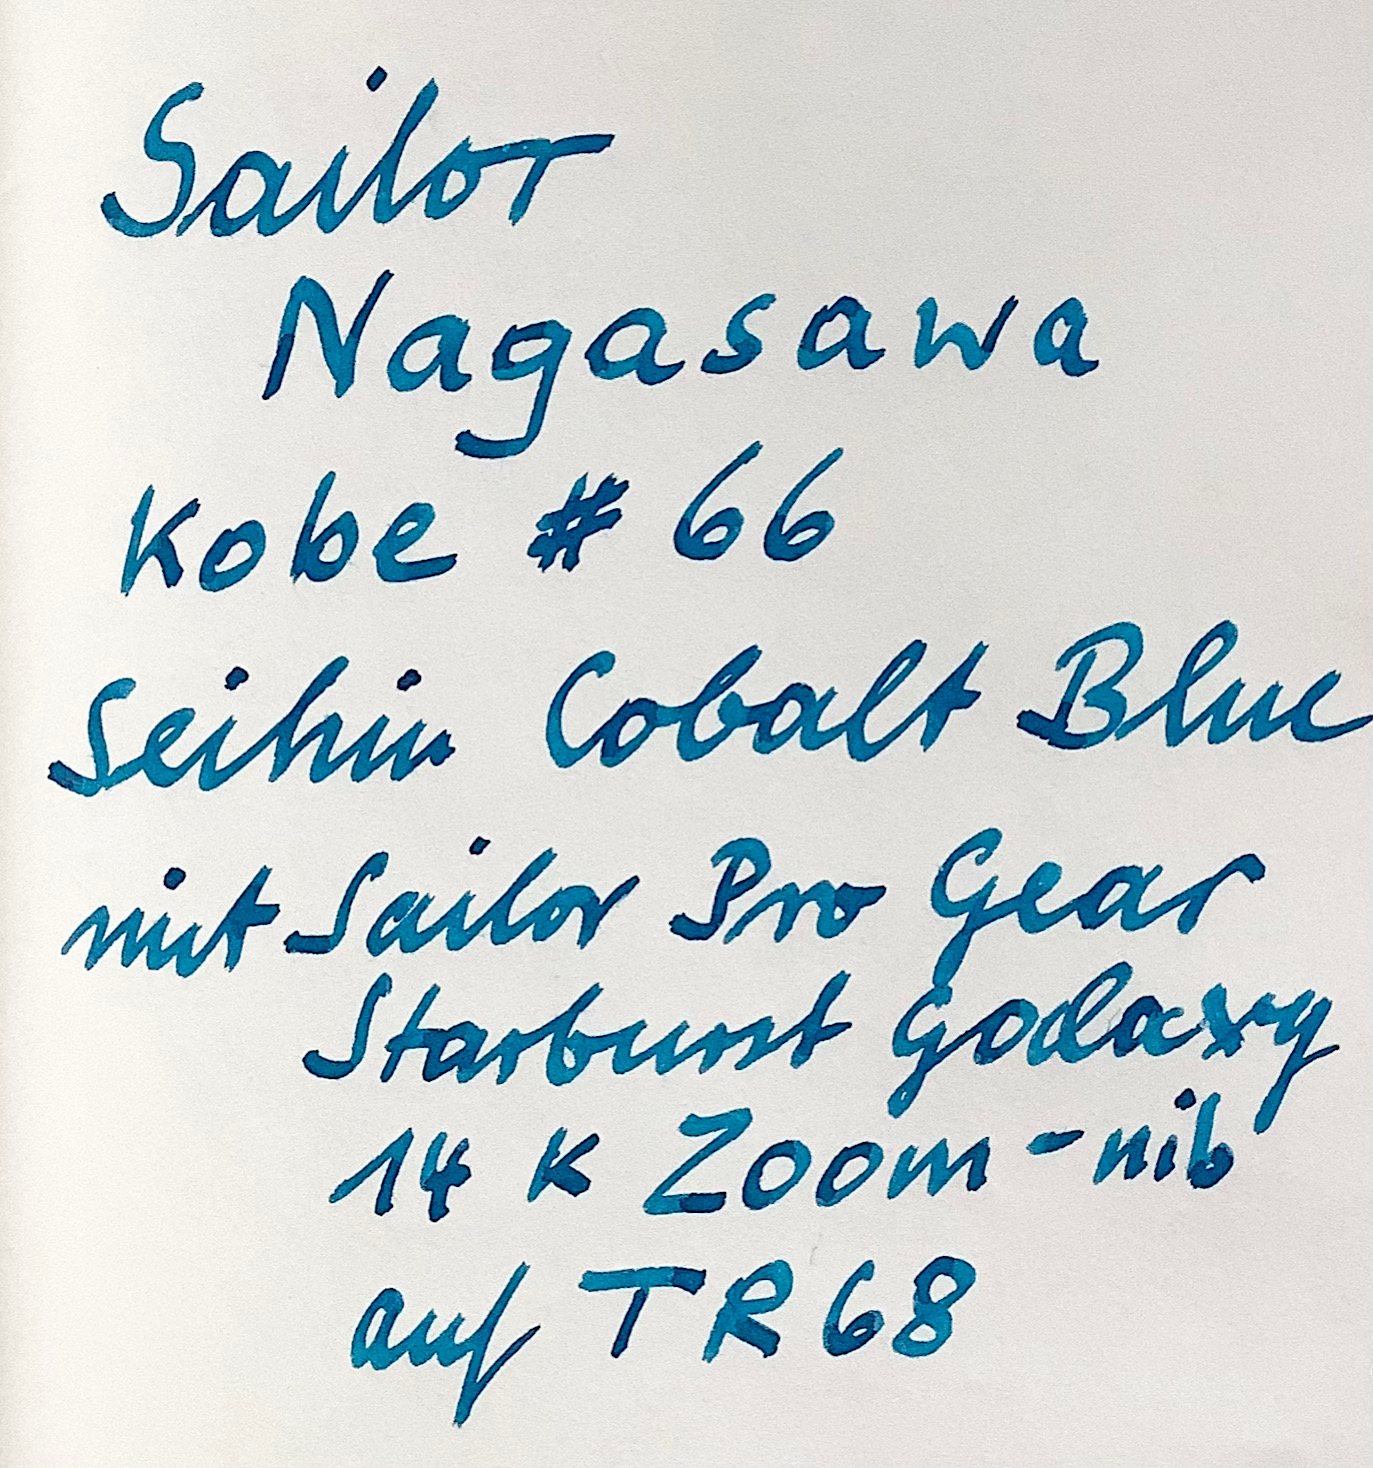 Sailor
Nagasawa
Kobe # 66
Seihin Cobalt Blue
mit Sailor Pro Gear
Starburst Galaxy
14 K Zoom-nib
auf TR68